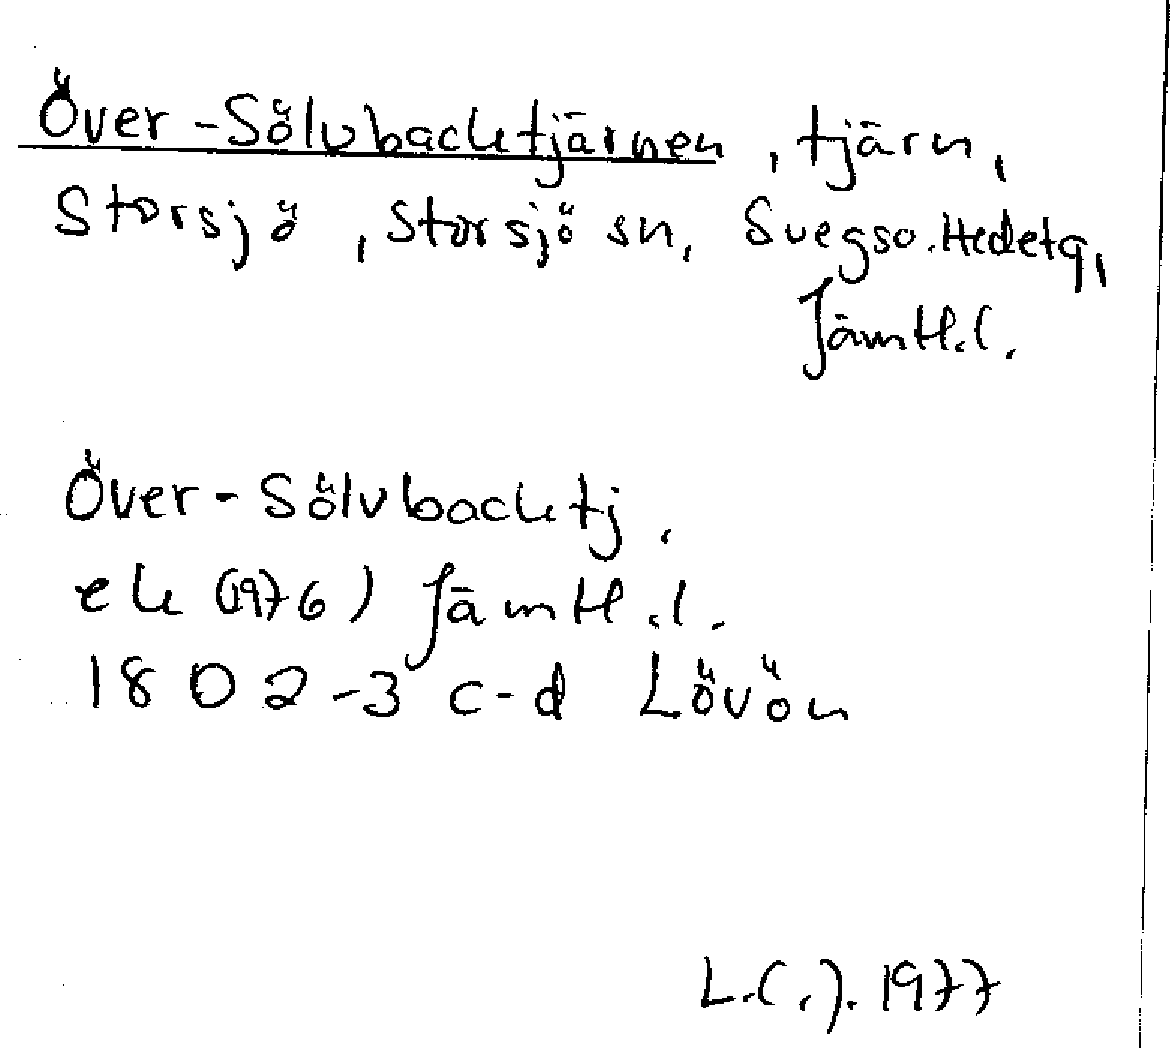 Över-Sölvbacktjärnen, tjärn,
Storsjö, Storsjö sn, Svegs o. Hede tg,
Jämtl.l.
Över-Sölvbacktj.
ek (1976) Jämtl.l.
1802-3 c-d Lövön
L.C.J. 1977